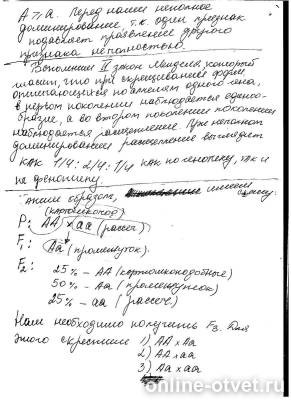 А > а. Перед нами неполное
доминирование т.к. один признак
подавляет проявление другого
признака неполностью.
Вспомним II закон Менделя, который
гласит, что при скрещивании
отличающихся по аллелям одного гена,
в первом поколении наблюдается едино-
образие, а во втором поколении
наблюдается расщепление. При неполном
доминировании расщепление выглядит
как 1/4 : 2/4 : 1/4 как по генотипу, так и
по фенотипу.
Таким образом, имеем
P: AA × aa (рассеч.)
F1: Aa (промежуток.)
F2: 25% - AA (
50% - Aa (промежуток
25% - aa (рассеч.)
Нам необходимо получить F3. Для
этого скрестим 1) AA × Aa
2) AA × aa
3) Aa × aa
online-otvet.ru